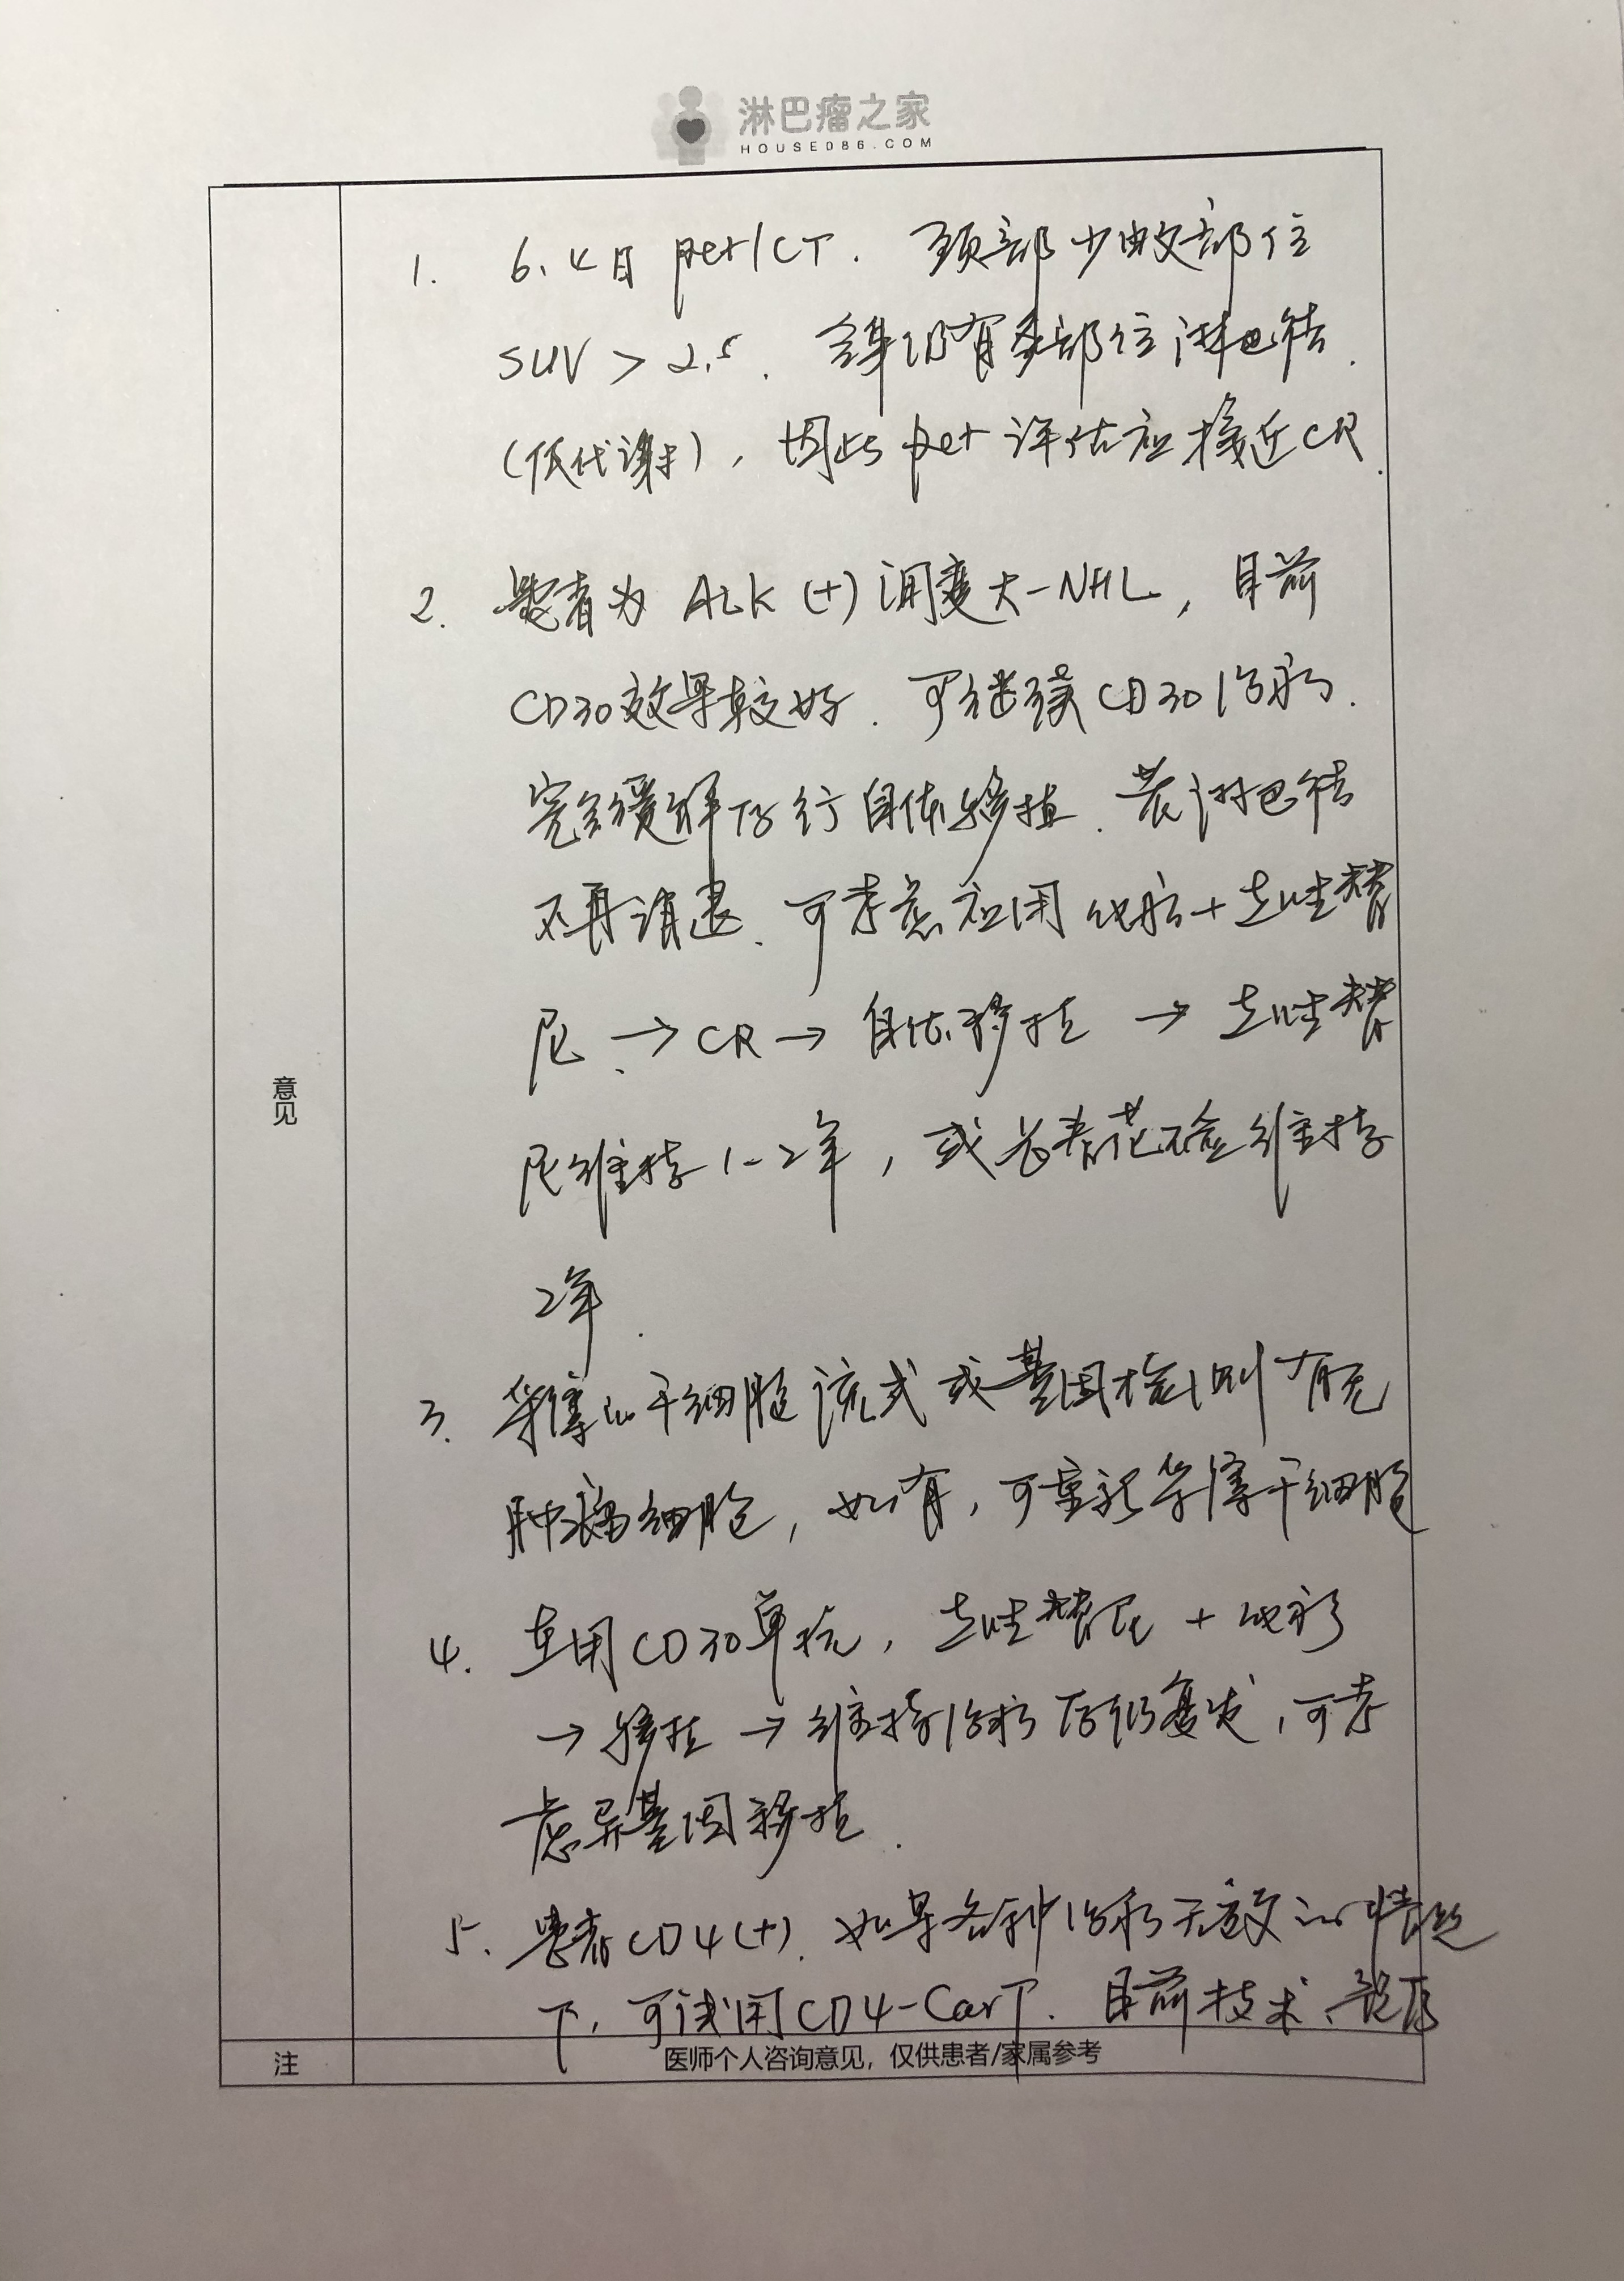 淋巴瘤之家
HOUSE086.COM
1. 6.4日 pet/CT. 颈部少数部位
SUV > 2.5. 全身仍有多部位淋巴结.
(低代谢), 因此pet评估应接近CR.
2. 患者为 ALK (+) 间变大-NHL, 目前
CD30效果较好. 可继续CD30治疗.
完全缓解后行自体移植. 若淋巴结
不再消退、可考虑应用化疗+克唑替
尼. → CR → 自体移植 → 克唑替
尼维持1-2年, 或长春花碱维持
2年.
意见
3. 采集的干细胞流式或基因检测有无
肿瘤细胞, 如有, 可重新采集干细胞
4. 应用CD30单抗, 克唑替尼 + 化疗
→ 移植 → 维持治疗后仍复发, 可考
虑异基因移植.
5. 患者CD4(+). 如果各种治疗无效的情况
下, 可试用CD4-CarT. 目前技术、
注
医师个人咨询意见，仅供患者/家属参考